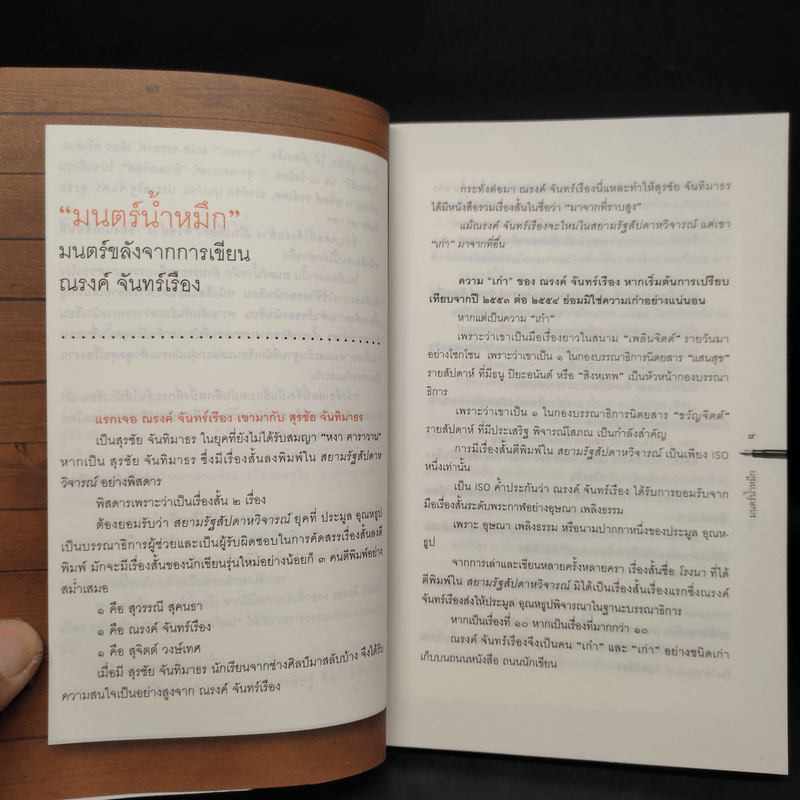 “มนตร์น้ำหมึก”
มนตร์ขลังจากการเขียน
ณรงค์ จันทร์เรือง
แรกเจอ ณรงค์ จันทร์เรือง เขามากับ สุรชัย จันทิมาธร
เป็นสุรชัย จันทิมาธร ในยุคที่ยังไม่ได้รับสมญา “หงา คาราวาน”
หากเป็น สุรชัย จันทิมาธร ซึ่งมีเรื่องสั้นลงพิมพ์ใน สยามรัฐสัปดาห
วิจารณ์ อย่างพิสดาร
พิสดารเพราะว่าเป็นเรื่องสั้น ๒ เรื่อง
ต้องยอมรับว่า สยามรัฐสัปดาหวิจารณ์ ยุคที่ ประมูล อุณหธูป
เป็นบรรณาธิการผู้ช่วยและเป็นผู้รับผิดชอบในการคัดสรรเรื่องสั้นลงตี
พิมพ์ มักจะมีเรื่องสั้นของนักเขียนรุ่นใหม่อย่างน้อยก็ ๓ คนตีพิมพ์อย่าง
สม่ำเสมอ
๑ คือ สุวรรณี สุคนธา
๑ คือ ณรงค์ จันทร์เรือง
๑ คือ สุจิตต์ วงษ์เทศ
เมื่อมี สุรชัย จันทิมาธร นักเรียนจากช่างศิลป์มาสลับบ้าง จึงได้รับ
ความสนใจเป็นอย่างสูงจาก ณรงค์ จันทร์เรือง
กระทั่งต่อมา ณรงค์ จันทร์เรืองนี่แหละทำให้สุรชัย จันทิมาธร
ได้มีหนังสือรวมเรื่องสั้นในชื่อว่า “มาจากที่ราบสูง”
แม้ณรงค์ จันทร์เรืองจะใหม่ในสยามรัฐสัปดาหวิจารณ์ แต่เขา
“เก่า” มาจากที่อื่น
ความ “เก่า” ของ ณรงค์ จันทร์เรือง หากเริ่มต้นการเปรียบ
เทียบจากปี ๒๕๕๓ ต่อ ๒๕๕๔ ย่อมมิใช่ความเก่าอย่างแน่นอน
หากแต่เป็นความ “เก๋า”
เพราะว่าเขาเป็นมือเรื่องยาวในสนาม “เพลินจิตต์” รายวันมา
อย่างโชกโชน เพราะว่าเขาเป็น ๑ ในกองบรรณาธิการนิตยสาร “แสนสุข”
รายสัปดาห์ ที่มีธนู ปิยะอนันต์ หรือ “สิงหเทพ” เป็นหัวหน้ากองบรรณา
ธิการ
เพราะว่าเขาเป็น ๑ ในกองบรรณาธิการนิตยสาร “ขวัญจิตต์”
รายสัปดาห์ ที่มีประเสริฐ พิจารณ์โสภณ เป็นกำลังสำคัญ
การมีเรื่องสั้นตีพิมพ์ใน สยามรัฐสัปดาหวิจารณ์ เป็นเพียง ISO
หนึ่งเท่านั้น
เป็น ISO ค้ำประกันว่า ณรงค์ จันทร์เรือง ได้รับการยอมรับจาก
มือเรื่องสั้นระดับพระกาฬอย่างอุษณา เพลิงธรรม
เพราะ อุษณา เพลิงธรรม หรือนามปากกาหนึ่งของประมูล อุณห-
ธูป
จากการเล่าและเขียนหลายครั้งหลายครา เรื่องสั้นชื่อ โรงนา ที่ได้
ตีพิมพ์ใน สยามรัฐสัปดาหวิจารณ์ มิได้เป็นเรื่องสั้นเรื่องแรกซึ่งณรงค์
จันทร์เรืองส่งให้ประมูล อุณหธูปพิจารณาในฐานะบรรณาธิการ
หากเป็นเรื่องที่ ๑๐ หากเป็นเรื่องที่มากกว่า ๑๐
ณรงค์ จันทร์เรืองจึงเป็นคน “เก่า” และ “เก๋า” อย่างชนิดเก๋า
เก็บบนถนนหนังสือ ถนนนักเขียน
๙
มนตร์น้ำหมึก